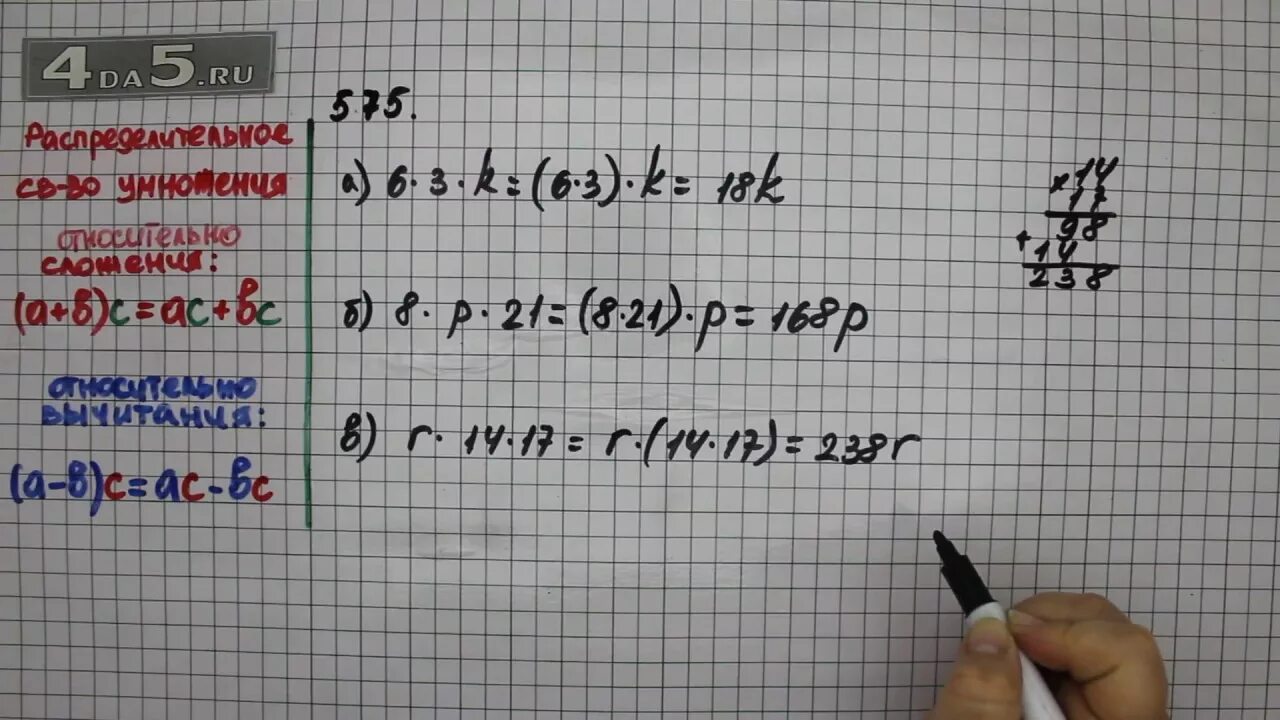 4DA5.RU
Распределительное
св-во умножения
относительно
сложения:
(а+в)с=ас+вс
относительно
вычитания:
(а-в)с=ас-вс
575.
а) 6·3·k=(6·3)·k= 18k
б) 8·p·21=(8·21)·p=168p
в) r·14·17=r·(14·17)=238r
×14
17
98
+14
238